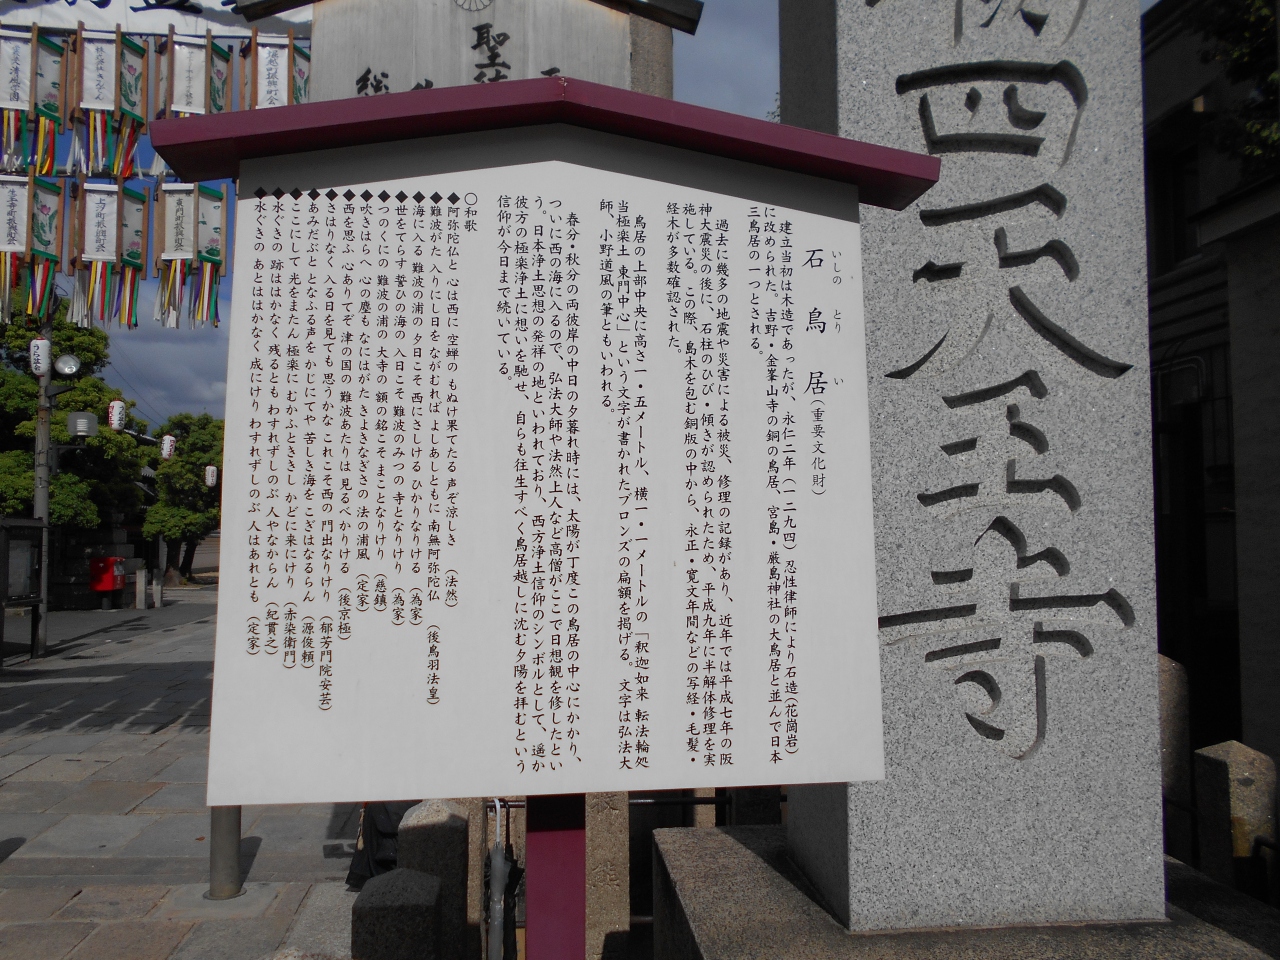 石鳥居(重要文化財)
いしの とり い
建立当初は木造であったが、永仁二年(一二九四)忍性律師により石造(花崗岩)
に改められた。吉野・金峯山寺の銅の鳥居、宮島・厳島神社の大鳥居と並んで日本
三鳥居の一つとされる。
過去に幾多の地震や災害による被災、修理の記録があり、近年では平成七年の阪
神大震災の後に、石柱のひび・傾きが認められたため、平成九年に半解体修理を実
施している。この際、島木を包む銅版の中から、永正・寛文年間などの写経・毛髪・
経木が多数確認された。
鳥居の上部中央に高さ一・五メートル、横一・一メートルの「釈迦如来 転法輪処
当極楽土 東門中心」という文字が書かれたブロンズの扁額を掲げる。文字は弘法大
師、小野道風の筆ともいわれる。
春分・秋分の両彼岸の中日の夕暮れ時には、太陽が丁度この鳥居の中心にかかり、
ついに西の海に入るので、弘法大師や法然上人など高僧がここで日想観を修したとい
う。日本浄土思想の発祥の地といわれており、西方浄土信仰のシンボルとして、遥か
彼方の極楽浄土に想いを馳せ、自らも往生すべく鳥居越しに沈む夕陽を拝むという
信仰が今日まで続いている。
○和歌
◆阿弥陀仏と 心は西に 空蝉の もぬけ果てたる 声ぞ涼しき (法然)
◆難波がた 入りにし日を ながむれば よしあしともに 南無阿弥陀仏 (後鳥羽法皇)
◆海に入る 難波の浦の 夕日こそ 西にさしける ひかりなりける (為家)
◆世をてらす 誓ひの海の 入日こそ 難波のみつの 寺となりけり (為家)
◆つのくにの 難波の浦の 大寺の 額の銘こそ まことなりけり (慈鎮)
◆吹きはらへ 心の塵も なにはがた きよきなぎさの 法の浦風 (定家)
◆西を思ふ 心ありてぞ 津の国の 難波あたりは 見るべかりける (後京極)
◆さはりなく 入る日を見ても 思うかな これこそ西の 門出なりけり (郁芳門院安芸)
◆あみだぶと となふる声を かじにてや 苦しき海を こぎはなるらん (源俊頼)
◆ここにして 光をまたん 極楽に むかふときしか どに来にけり (赤染衛門)
◆水ぐきの 跡ははかなく 残るとも わすれずしのぶ 人やなからん (紀貫之)
◆水ぐきの あとははかなく 成にけり わすれずしのぶ 人はあれとも (定家)
四天王寺
聖
総